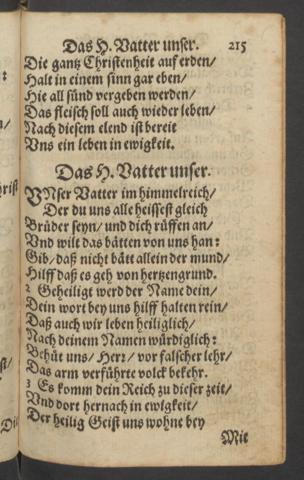 Das H. Vatter unser. 215
Die gantz Christenheit auf erden/
Halt in einem sinn gar eben/
Hie all sünd vergeben werden/
Das fleisch soll auch wieder leben/
Nach diesem elend ist bereit
Vns ein leben in ewigkeit.
Das H. Vatter unser.
VNser Vatter im himmelreich/
Der du uns alle heissest gleich
Brüder seyn/ und dich rüffen an/
Vnd wilt das bätten von uns han:
Gib/ daß nicht bätt allein der mund/
Hilff daß es geh von hertzengrund.
2 Geheiligt werd der Name dein/
Dein wort bey uns hilff halten rein/
Daß auch wir leben heiliglich/
Nach deinem Namen würdiglich:
Behüt uns/ Herr/ vor falscher lehr/
Das arm verführte volck bekehr.
3 Es komm dein Reich zu dieser zeit/
Vnd dort hernach in ewigkeit/
Der heilig Geist uns wohne bey
Mit